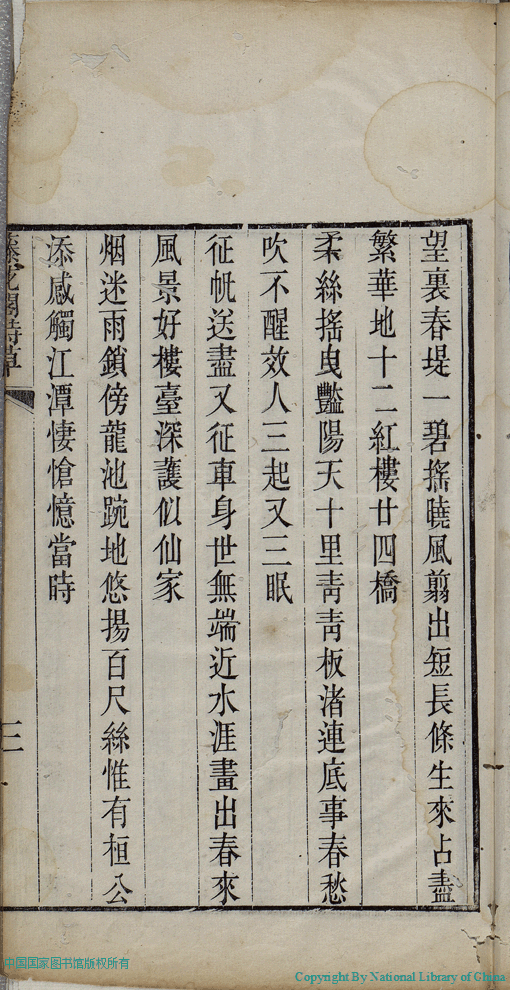 望裏春堤一碧搖曉風翦出短長條生來占盡
繁華地十二紅樓廿四橋
柔絲搖曳豔陽天十里青青板渚連底事春愁
吹不醒效人三起又三眠
征帆送盡又征車身世無端近水涯畫出春來
風景好樓臺深護似仙家
烟迷雨鎖傍龍池踠地悠揚百尺絲惟有桓公
添感觸江潭悽愴憶當時
閣詩草
三
中国国家图书馆版权所有
Copyright By National Library of China